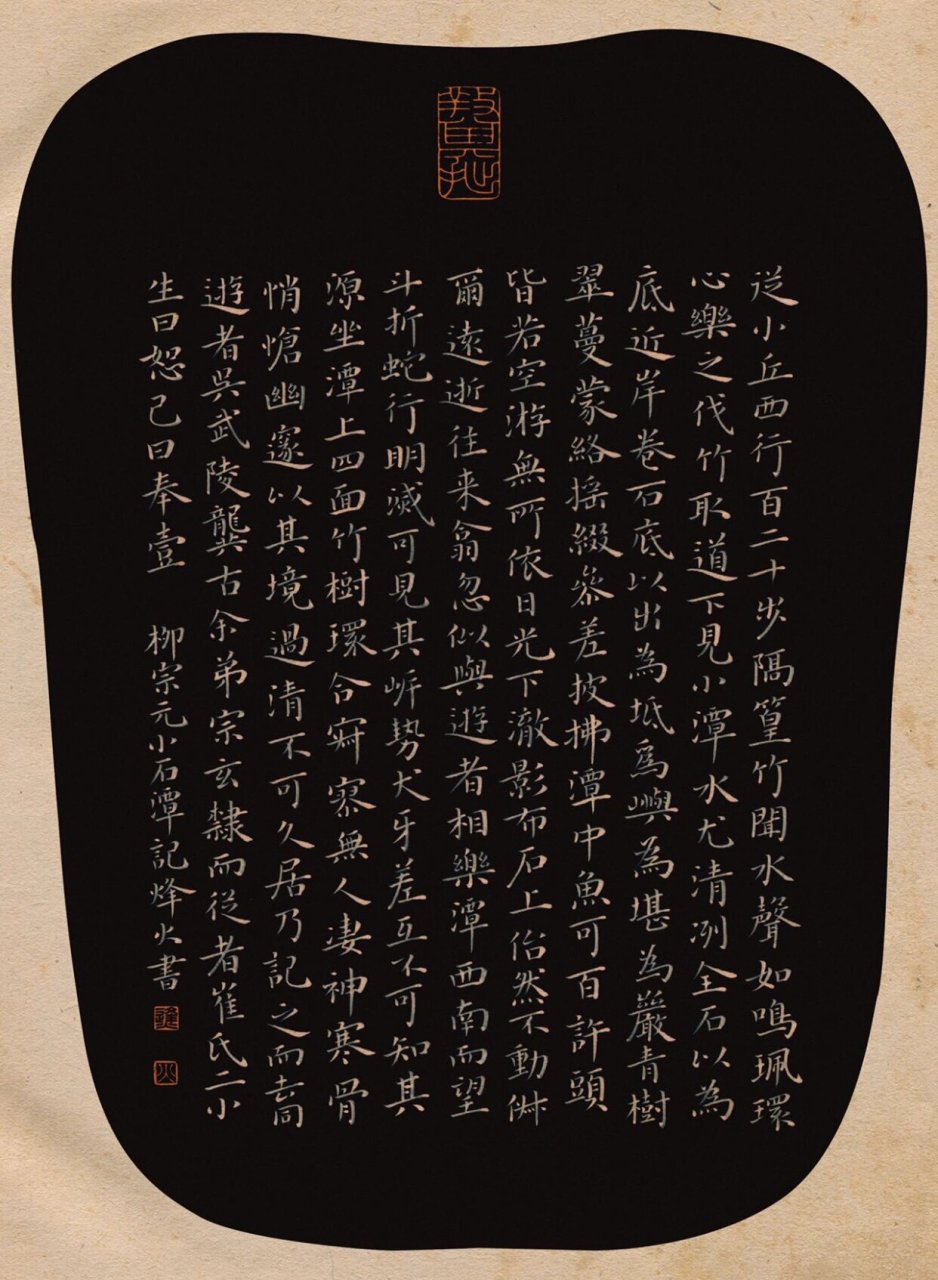 從小丘西行百二十步隔篁竹聞水聲如鳴珮環
心樂之伐竹取道下見小潭水尤清冽全石以為
底近岸卷石底以出為坻為嶼為堪為巖青樹
翠蔓蒙絡搖綴參差披拂潭中魚可百許頭
皆若空游無所依日光下澈影布石上佁然不動俶
爾遠逝往来翕忽似與遊者相樂潭西南而望
斗折蛇行明滅可見其岸勢犬牙差互不可知其
源坐潭上四面竹樹環合寂寥無人凄神寒骨
悄愴幽邃以其境過清不可久居乃記之而去同
遊者吳武陵龔古余弟宗玄隸而從者崔氏二小
生曰恕己曰奉壹 柳宗元小石潭記烽火書